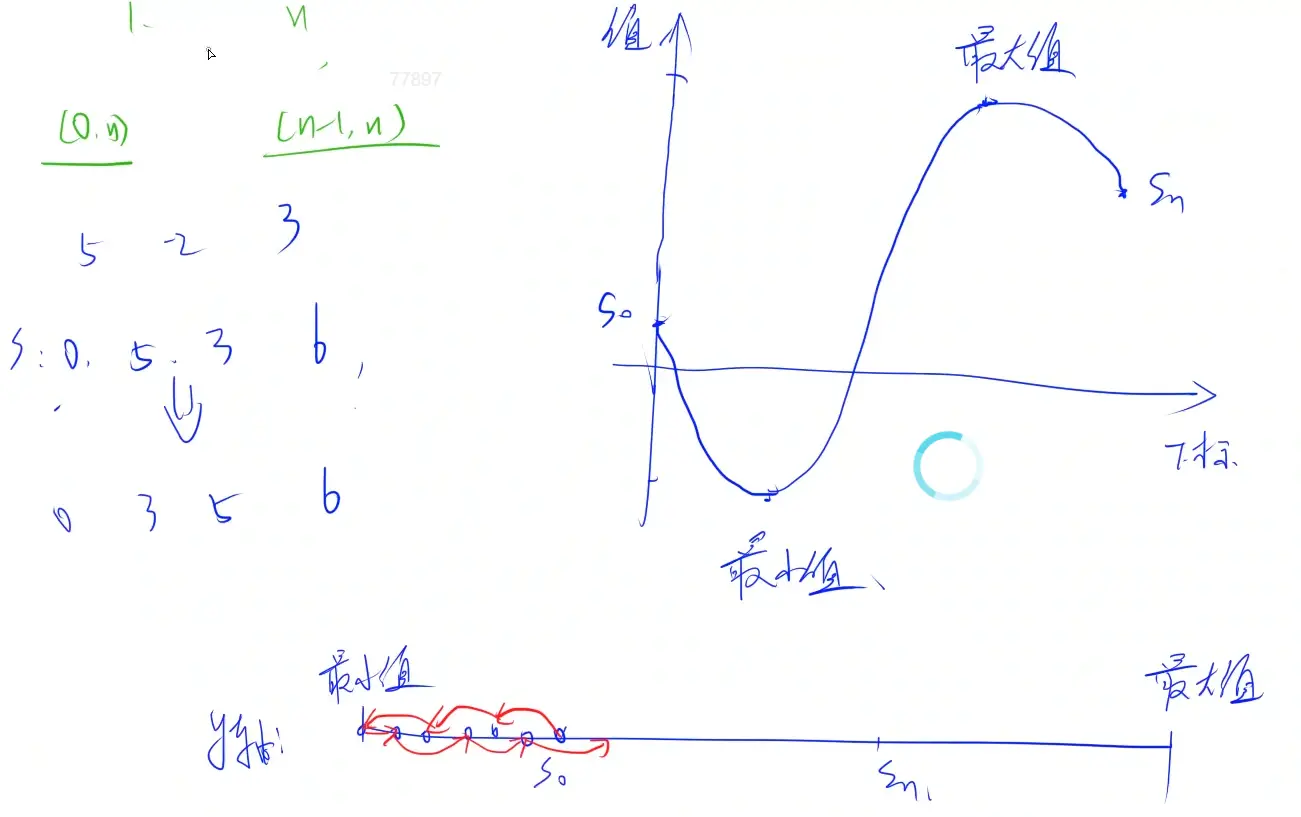 1. n
77897
(0,n) (n-1,n)
5 -2 3
S: 0. 5. 3 6,
0 3 5 6
值
最大值
Sn
S0
下标
最小值、
最小值
最大值
y轴:
S0
Sn,